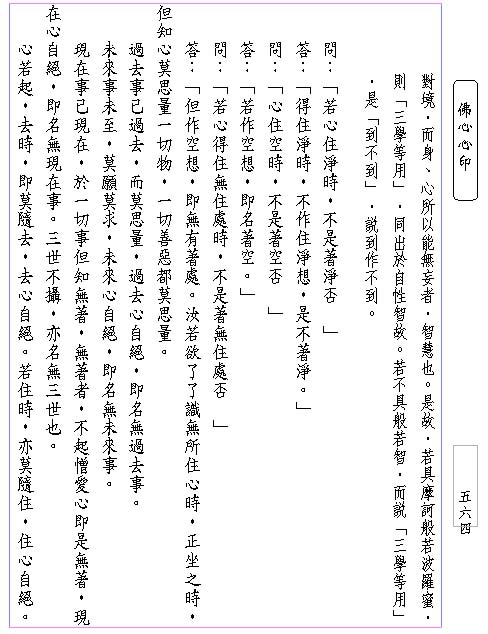 佛心心印
五六四
對境，而身、心所以能無妄者，智慧也。是故，若具摩訶般若波羅蜜，
則「三學等用」，同出於自性智故。若不具般若智，而說「三學等用」
，是「到不到」，說到作不到。
問：「若心住淨時，不是著淨否　」
答：「得住淨時，不作住淨想，是不著淨。」
問：「心住空時，不是著空否　」
答：「若作空想，即名著空。」
問：「若心得住無住處時，不是著無住處否　」
答：「但作空想，即無有著處。汝若欲了了識無所住心時，正坐之時，
但知心莫思量一切物，一切善惡都莫思量。
過去事已過去，而莫思量，過去心自絕，即名無過去事。
未來事未至，莫願莫求，未來心自絕，即名無未來事。
現在事已現在，於一切事但知無著，無著者，不起憎愛心即是無著，現
在心自絕，即名無現在事。三世不攝，亦名無三世也。
心若起，去時，即莫隨去，去心自絕。若住時，亦莫隨住，住心自絕。